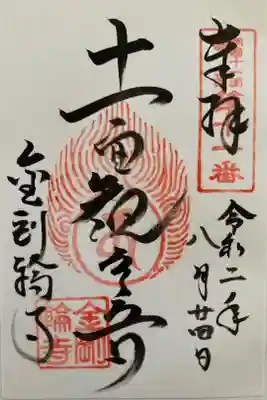 奉拝
令和二年
八月廿四日
十一面観世音
金剛輪寺
金剛
輪寺